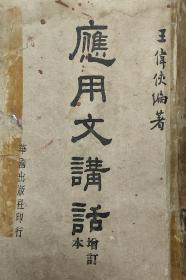 王偉俠編著
應用文講話
增訂本
華國出版社印行